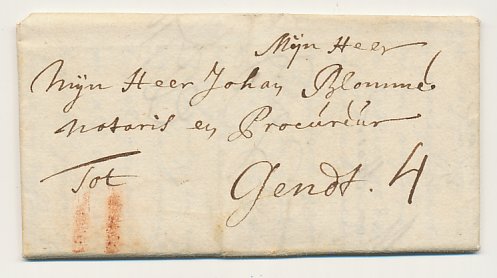 Mijn Heer
Mijn Heer Johan Blommé
notaris en Procúréúr
Tot Gendt. 4